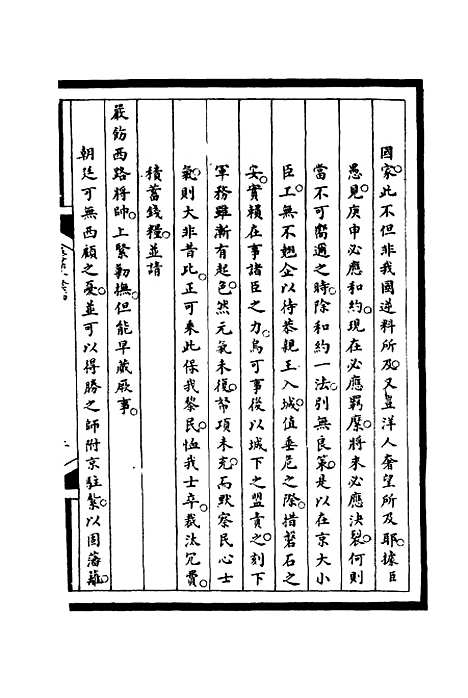 國家。此不但非我國逆料所及。又豈洋人奢望所及耶。據臣
愚見。庚申必應和約。現在必應羈縻。將來必應決裂。何則
當不可嚮邇之時。除和約一法。別無良策。是以在京大小
臣工。無不翹企以待恭親王入城。值垂危之際。措磐石之
安。實賴在事諸臣之力。烏可事後以城下之盟責之。刻下
軍務雖漸有起色。然元氣未復。帑項未充。而默察民心士
氣。則大非昔比。正可乘此保我黎民。恤我士卒。裁汰冗費。
積蓄錢糧。並請
嚴飭西路將帥。上緊勦撫。但能早蕆厥事。
朝廷可無西顧之憂。並可以得勝之師附京駐紮。以固藩籬。